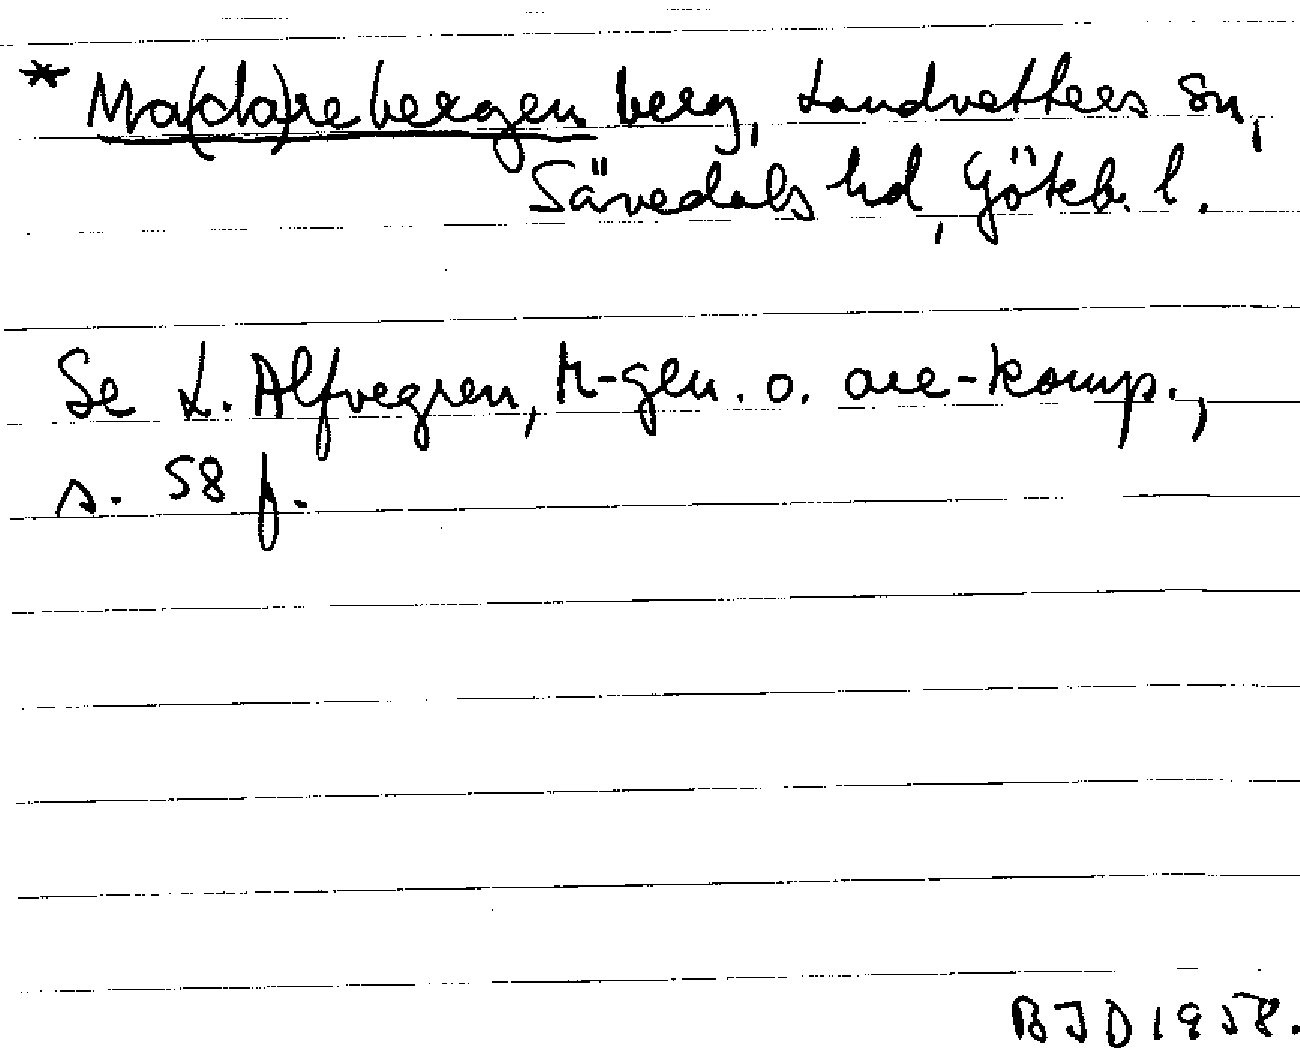 * Ma(da)re bergen berg, Landvetters sn,
Sävedals hd, Göteb. l.
Se L. Alfvegren, R-gen. o. are-komp.,
s. 58 f.
BJD 1958.